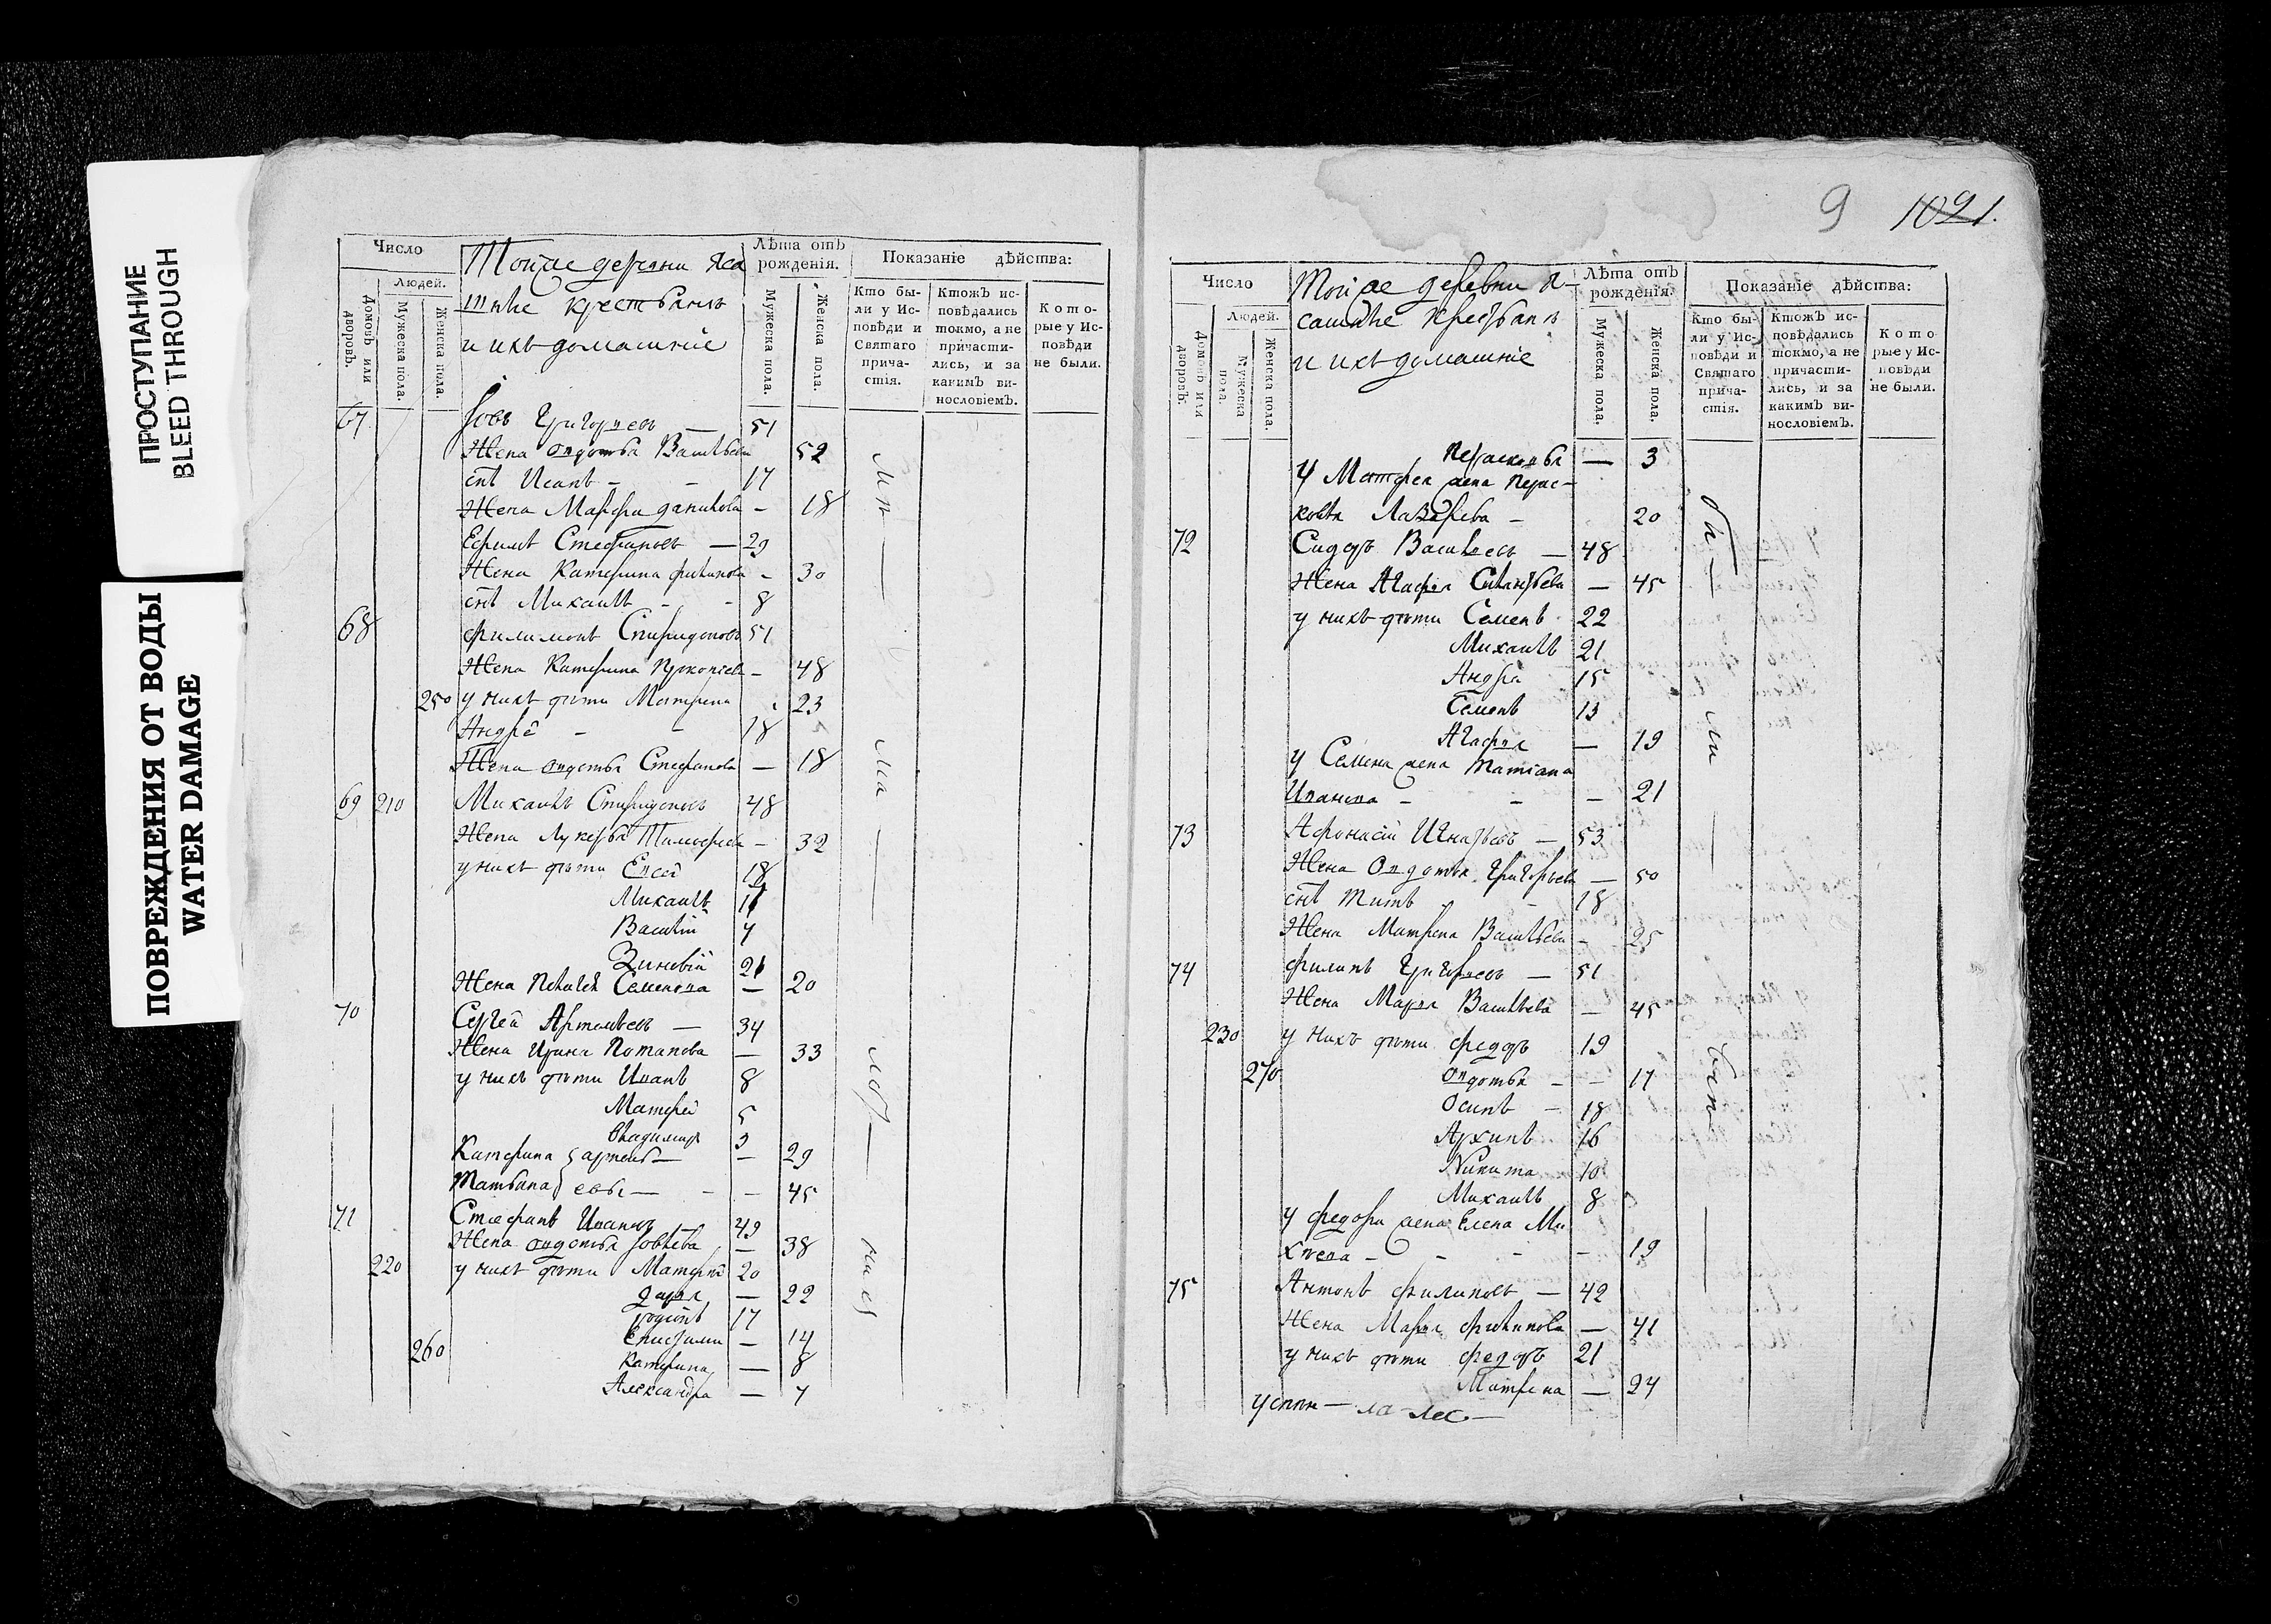 ПРОСТУПАНИЕ
BLEED THROUGH
ПОВРЕЖДЕНИЯ ОТ ВОДЫ
WATER DAMAGE
Число
Людей.
Домовъ или дворовъ.
Мужеска пола.
Женска пола.
Тойже деревни Яса
шные крестьяня
и ихъ домашніе
Лѣта отъ рожденія.
Мужеска пола.
Женска пола.
Показаніе дѣйства:
Кто были у Исповѣди и Святаго причастія.
Ктожъ исповѣдались токмо, а не причастились, и за какимъ винословіемъ.
Которые у Исповѣди не были.
67 Іовъ Григорьевъ — 51
Жена Овдотья Васильева 52
снъ Исакъ - - 17
Жена Марфа Данилова - 18
Ефимъ Стефановъ — 29
Жена Катерина Филипова - 30
снъ Михаилъ - - 8
68 Филимонъ Спиридоновъ 51
Жена Катерина Прокопіева - 48
250 у нихъ дѣти Матрена 23
Андрей - - 18
Жена Овдотья Стефанова — 18
69 210 Михаилъ Спиридоновъ 48
Жена Лукерья Тимофеева - 32
у нихъ дѣти Евсей 18
Михаилъ
Василій 7
Зиновій 21
Жена Пелагея Семенова — 20
70 Сергей Артемьевъ — 34
Жена Ирина Потапова — 33
у нихъ дѣти Иванъ 8
Матфей 5
Владимиръ 3
Катерина — 29
Татьяна — - - 45
71 Стефанъ Ивановъ 49
Жена Овдотья Іовлева — 38
220 у нихъ дѣти Матфей 20
Дарья — 22
Родіонъ 17
Епифима — 14
260 Катерина — 8
Александра — 7
9 1021.
Число
Людей.
Домовъ или дворовъ.
Мужеска пола.
Женска пола.
Тойже деревни Я-
сашные крестьяня
и ихъ домашніе
Лѣта отъ рожденія.
Мужеска пола.
Женска пола.
Показаніе дѣйства:
Кто были у Исповѣди и Святаго причастія.
Ктожъ исповѣдались токмо, а не причастились, и за какимъ винословіемъ.
Которые у Исповѣди не были.
Парасковья — 3
У Матфея жена Парас-
ковья Лазарева - 20
72 Сидоръ Васильевъ — 48
Жена Агафья Силантьева — 45
у нихъ дѣти Семенъ 22
Михаилъ 21
Андрей 15
Семенъ 13
Агафья — 19
у Семена жена Татіана
Иванова - - - 21
73 Афонасій Игнатьевъ — 53
Жена Овдотья Григорьева — 50
снъ Титъ - 18
Жена Матрена Васильева - 25
74 Филипъ Григорьевъ — 51
Жена Марья Васильева — 45
230 у нихъ дѣти Федоръ 19
270 Овдотья - - 17
Осипъ - 18
Архипъ 16
Никита 10
Михаилъ 8
у Федора жена Елена Ми
хѣева - - - - 19
75 Антонъ Филиповъ — 42
Жена Марья Филипова — 41
у нихъ дѣти Федоръ 21
Матрена — 24